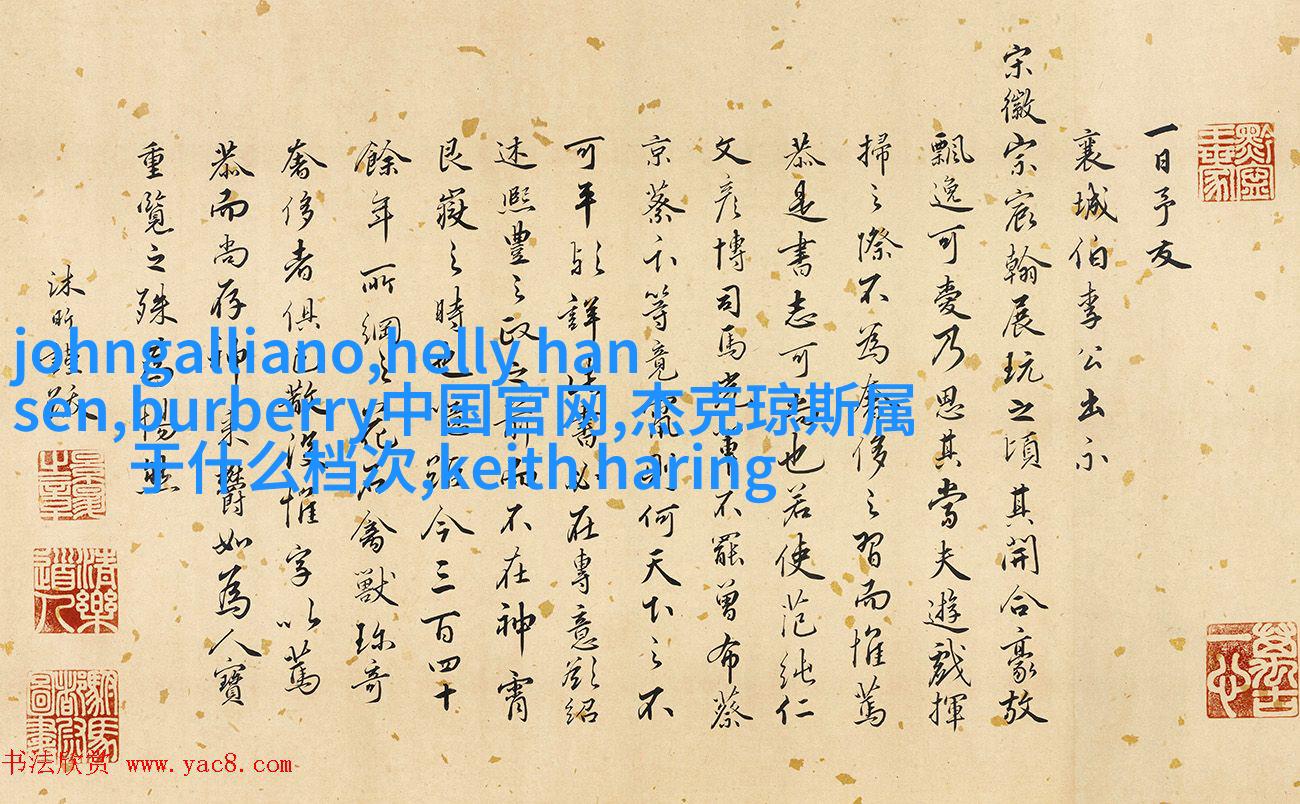 一日予友
襄城伯李公出示
宋徽宗宸翰展玩之頃其開合豪放
飄逸可愛乃思其當夫遊戲揮
掃之際不為奢侈之習而惟篤
恭是書志可也若使范純仁
文彥博司馬光不罷曾布蔡
京蔡卞等竟則何天下之不
可平歟詳法書必在專意歟紹
述熙豐之政之前而不在神霄
艮嶽之時也今三百四十
餘年所綱之花石禽獸珎奇
奢侈者俱已散沒惟字以篤
恭而尚存神采欝如為人寶
重覽之殊為惕然
沐昕謹跋
johngalliano,helly han
sen,burberry中国官网,杰克琼斯属
于什么档次,keith haring
书法欣赏 www.yac8.com